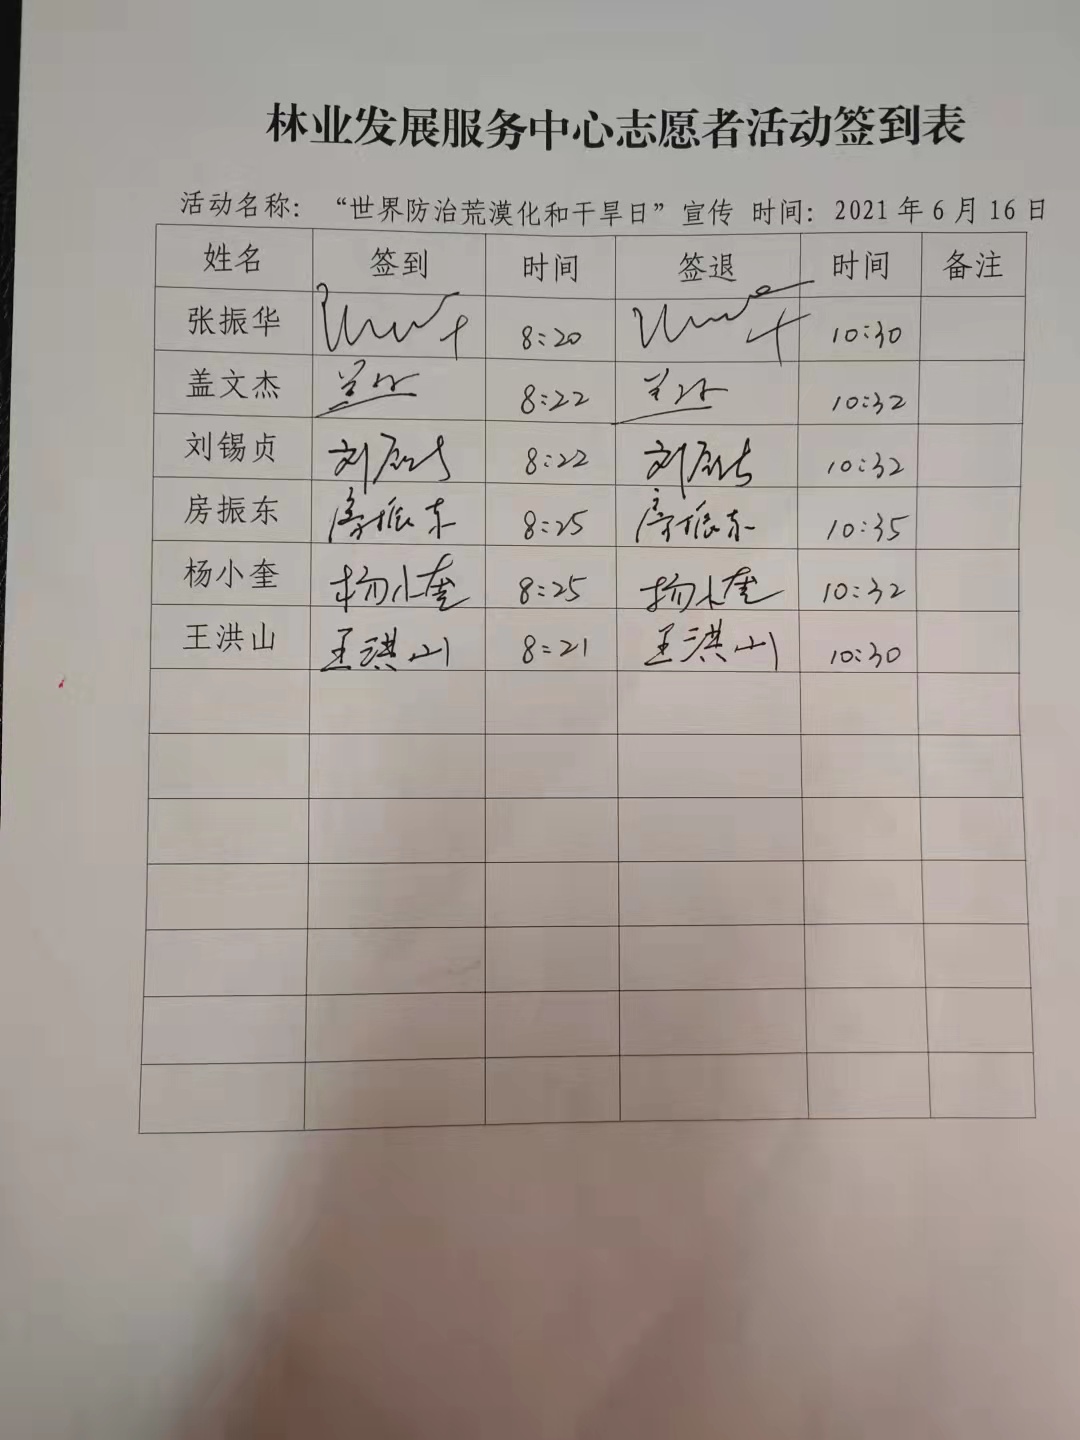 林业发展服务中心志愿者活动签到表
活动名称：“世界防治荒漠化和干旱日”宣传 时间：2021年6月16日
姓名 签到 时间 签退 时间 备注
张振华 8:20 10:30
盖文杰 8:22 10:32
刘锡贞 8:22 10:32
房振东 房振东 8:25 房振东 10:35
杨小奎 杨小奎 8:25 杨小奎 10:32
王洪山 王洪山 8:21 王洪山 10:30